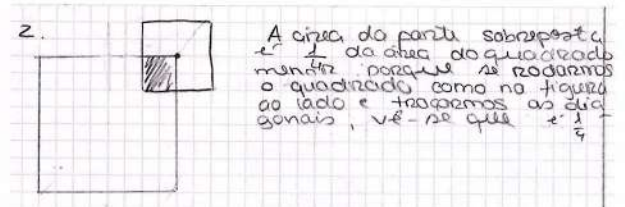 2.
A área da parte sobreposta
é 1/4 da área do quadrado
menor porque se rodarmos
o quadrado como na figura
ao lado e traçarmos as dia
gonais, vê-se que é 1/4